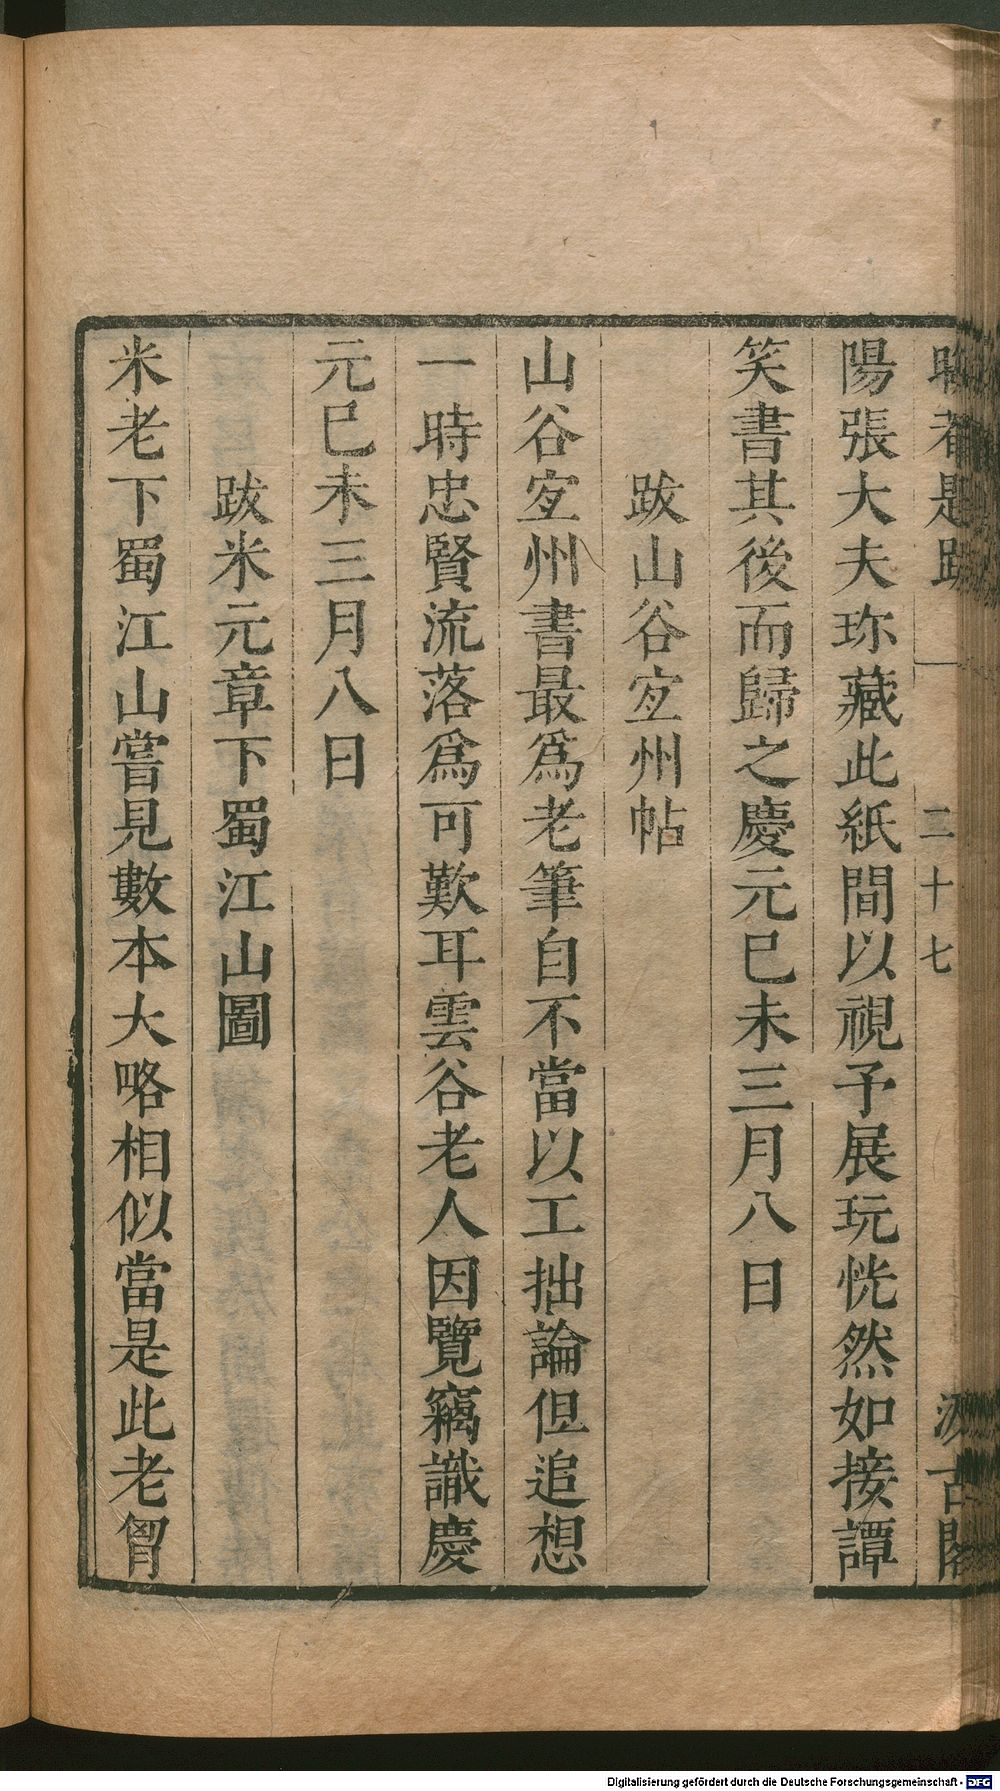 晦菴題跋 一 二十七 汲古閣
陽張大夫珎藏此紙間以視予展玩恍然如接譚
笑書其後而歸之慶元已未三月八日
跋山谷宐州帖
山谷宐州書最爲老筆自不當以工拙論但追想
一時忠賢流落爲可歎耳雲谷老人因覽竊識慶
元已未三月八日
跋米元章下蜀江山圖
米老下蜀江山嘗見數本大略相似當是此老胷
Digitalisierung gefördert durch die Deutsche Forschungsgemeinschaft - DFG